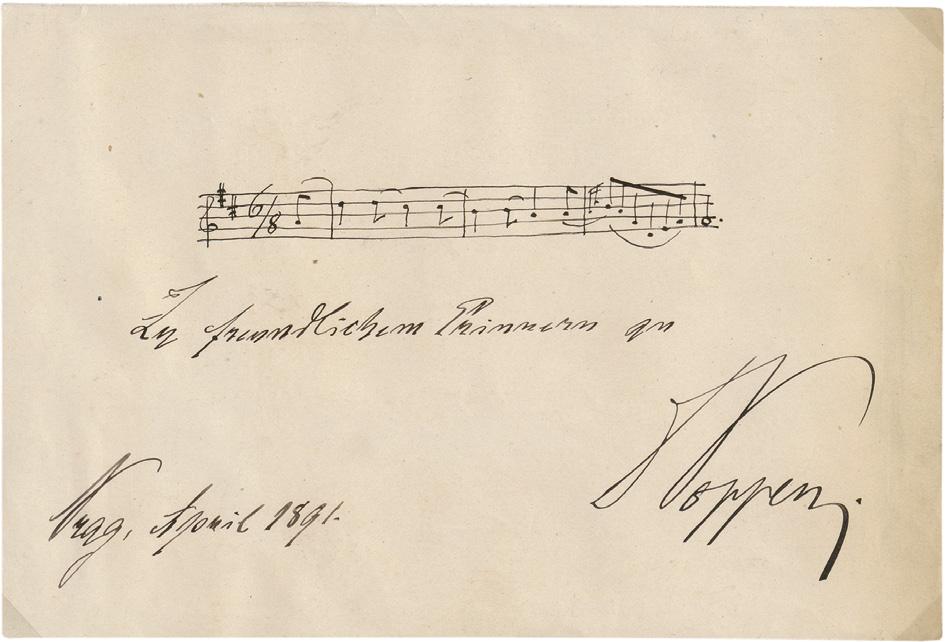 6/8
Zu freundlichem Erinnern an
D Popper.
Prag, April 1891.